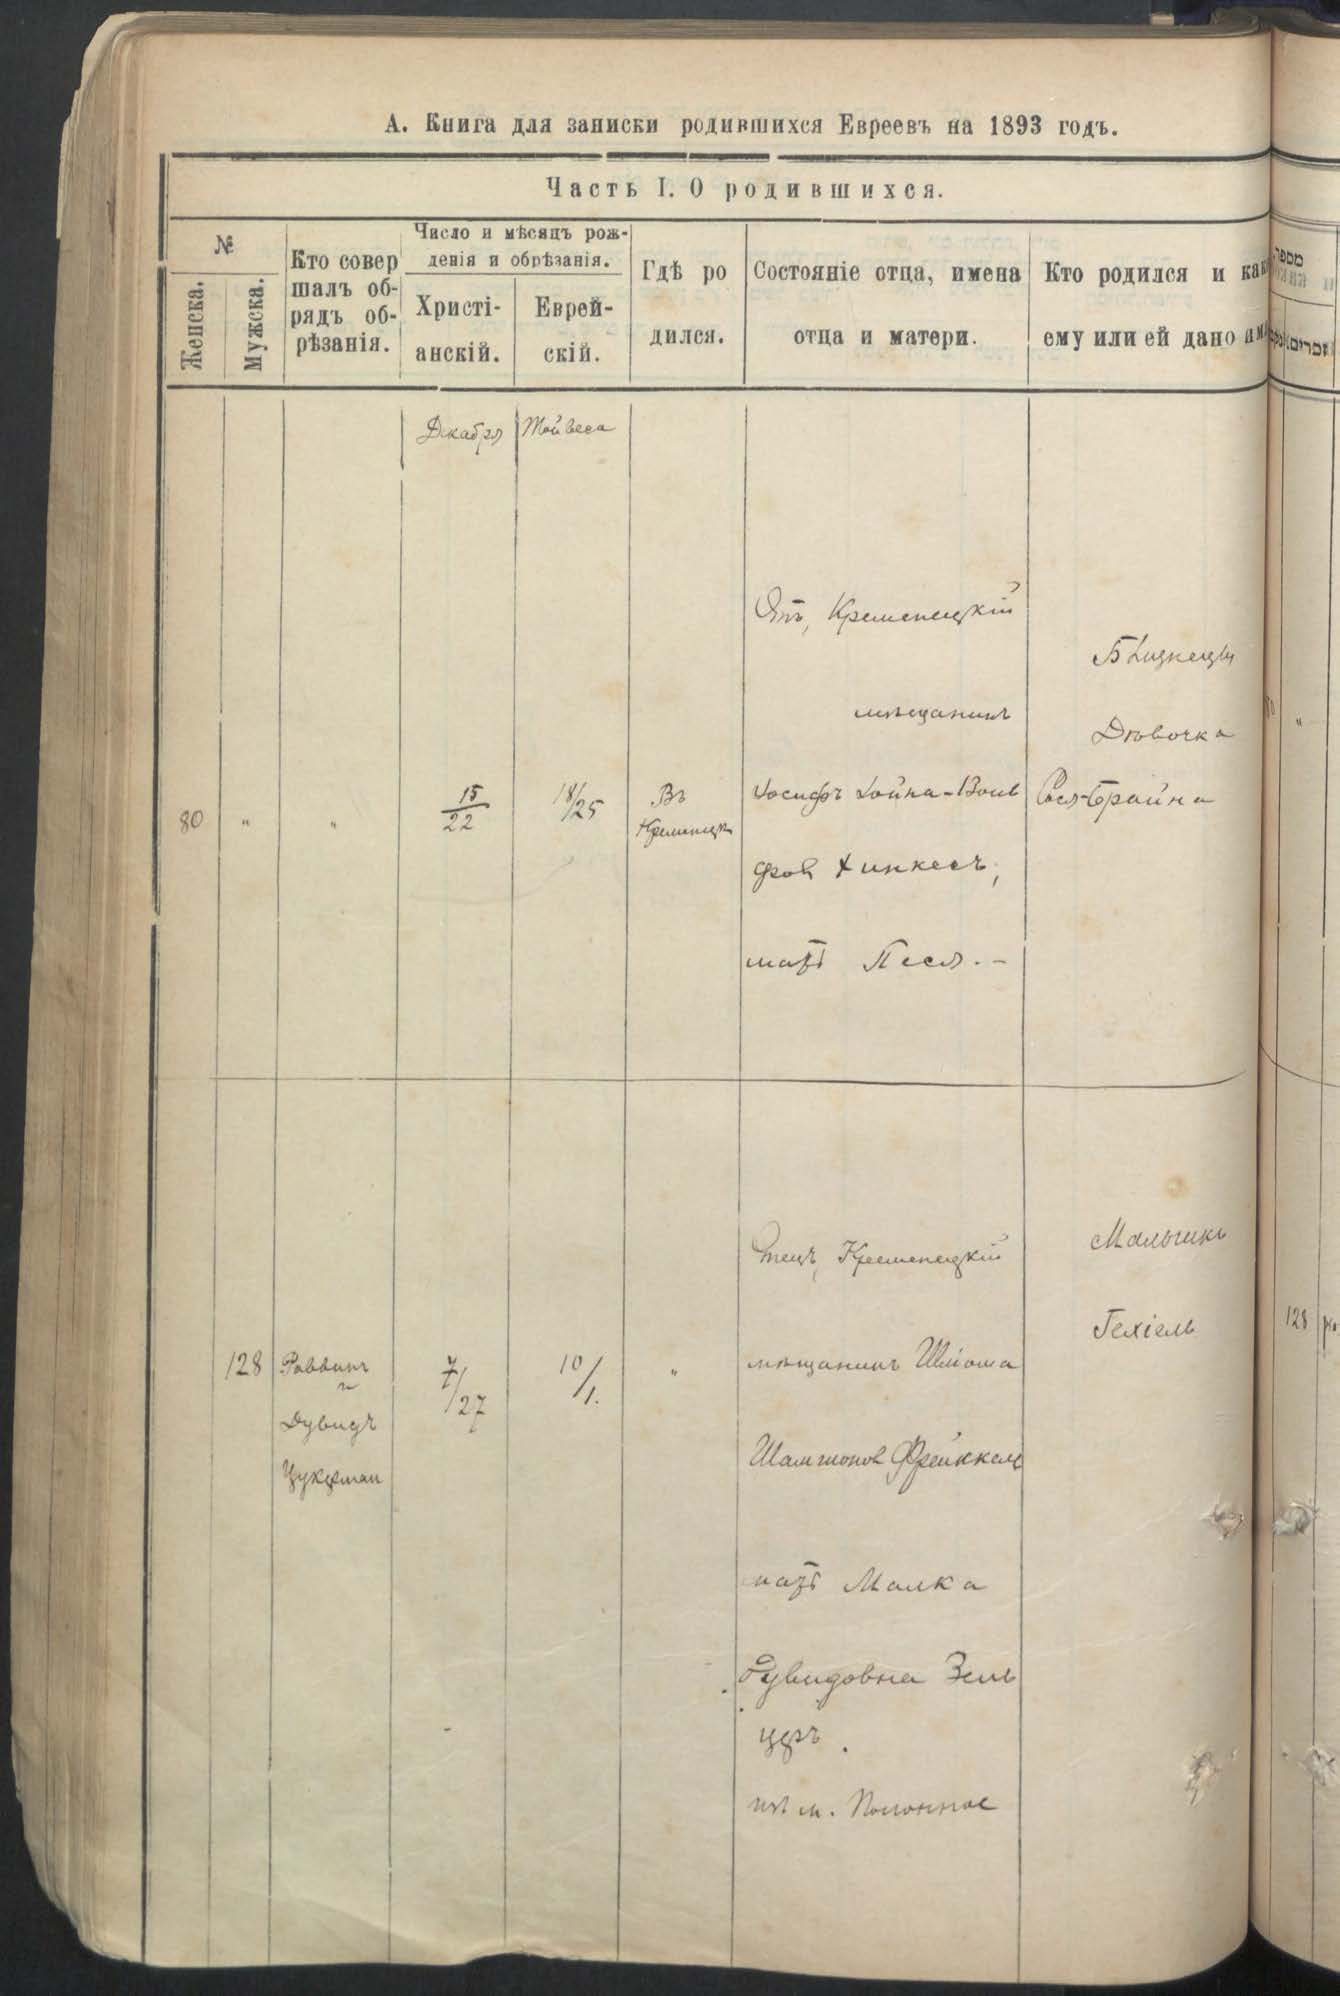 А. Книга для записки родившихся Евреевъ на 1893 годъ.
Часть I. О родившихся.
№
Женска.
Мужска.
Кто совер
шалъ об-
рядъ об-
рѣзанія.
Число и мѣсяцъ рож-
денія и обрѣзанія.
Христі-
анскій.
Еврей-
скій.
Гдѣ ро
дился.
Состояніе отца, имена
отца и матери.
Кто родился и как
ему или ей дано им
מספר
זכרים
Декабря
Тойвеса
80
"
"
15
22
18/25
Въ
Кременцѣ
Кременецкій
мѣщанинъ
Іосифъ Хойна-Вольв
Хинкесъ,
мать Песя. –
Дѣвочка
Рося-Брайна
"
128
Раввинъ
и
Дувидъ
Цукерман
7/27
10/1.
"
Отецъ, Кременецкій
мѣщанинъ Шлиома
Шамшонов Френккель
мать Малка
Дувидовна Зель
церъ.
изъ м. Полонное
Мальчикъ
Гехіель
128